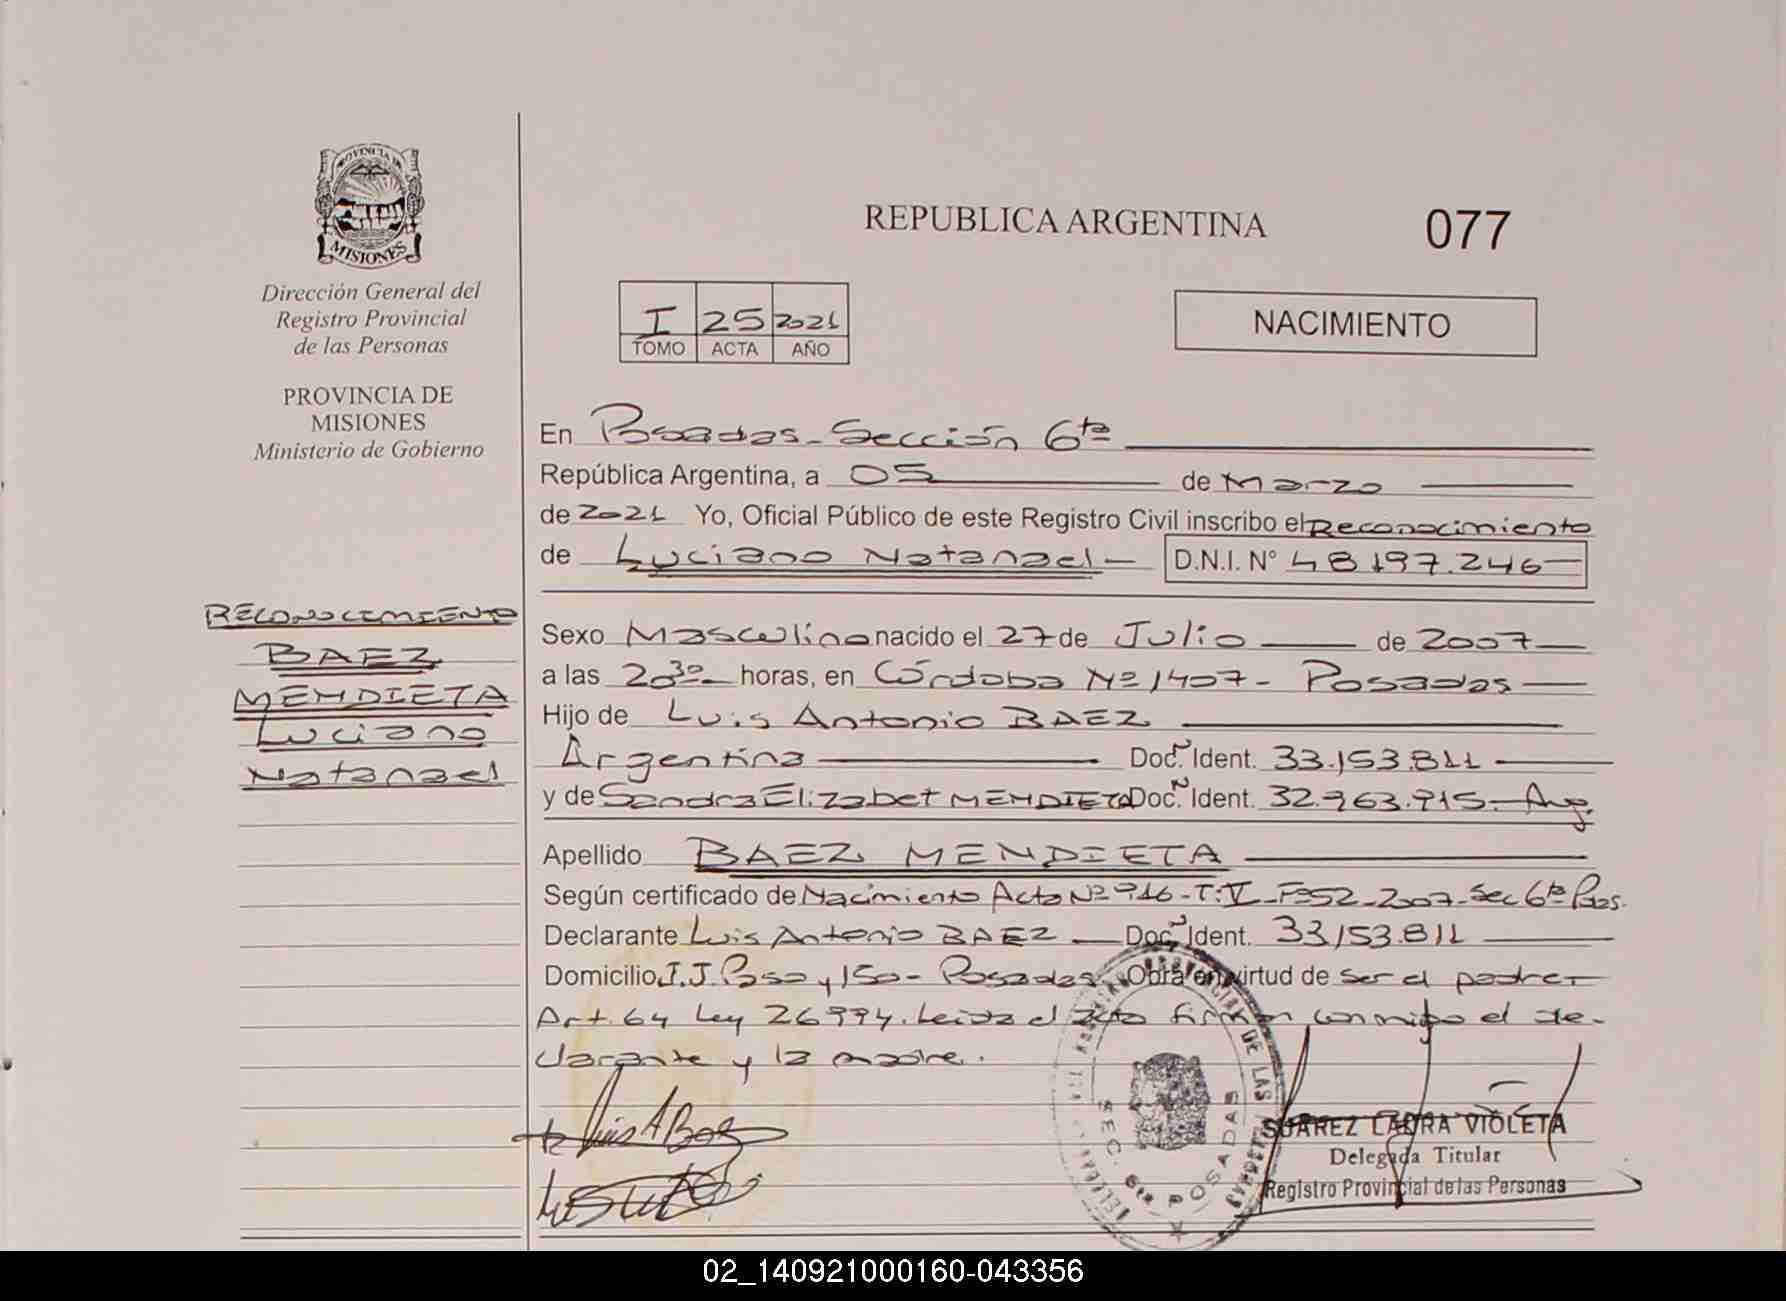 PROVINCIA DE
MISIONES
Dirección General del
Registro Provincial
de las Personas
PROVINCIA DE
MISIONES
Ministerio de Gobierno
RECONOCIMIENTO
BAEZ
MENDIETA
Luciano
Natanael
REPUBLICA ARGENTINA
077
I 25 2021
TOMO ACTA AÑO
NACIMIENTO
En Posadas - Sección 6ta
República Argentina, a 05 de Marzo
de 2021 Yo, Oficial Público de este Registro Civil inscribo el Reconocimiento
de Luciano Natanael - D.N.I. N° 48.197.246
Sexo Masculino nacido el 27 de Julio de 2007
a las 20 30 horas, en Córdoba Nº 1407 - Posadas
Hijo de Luis Antonio BAEZ
Argentina Doc. Ident. 33.153.811
y de Sandra Elizabet MENDIETA Doc. Ident. 32.963.915 - Arg.
Apellido BAEZ MENDIETA
Según certificado de Nacimiento Acta Nº 916 - T: V - Fº 52 - 2007 - Sec 6ta Pdas.
Declarante Luis Antonio BAEZ Doc. Ident. 33.153.811
Domicilio J.J. Paso y 150 - Posadas. Obra en virtud de ser el padre -
Art. 64 Ley 26994. Leída el acta firman conmigo el de-
clarante y la madre.
Luis A Baez
SEC. 6ta POSADAS
SUAREZ LAURA VIOLETA
Delegada Titular
Registro Provincial de las Personas
02_140921000160-043356